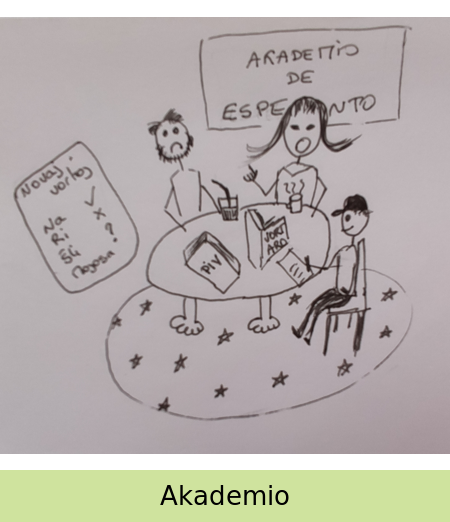 AKADEMIO
DE
ESPE NTO
Novaj
vortoj
✓
Na x
Ri ?
ŝli
PIV
VORT
ARO
Akademio